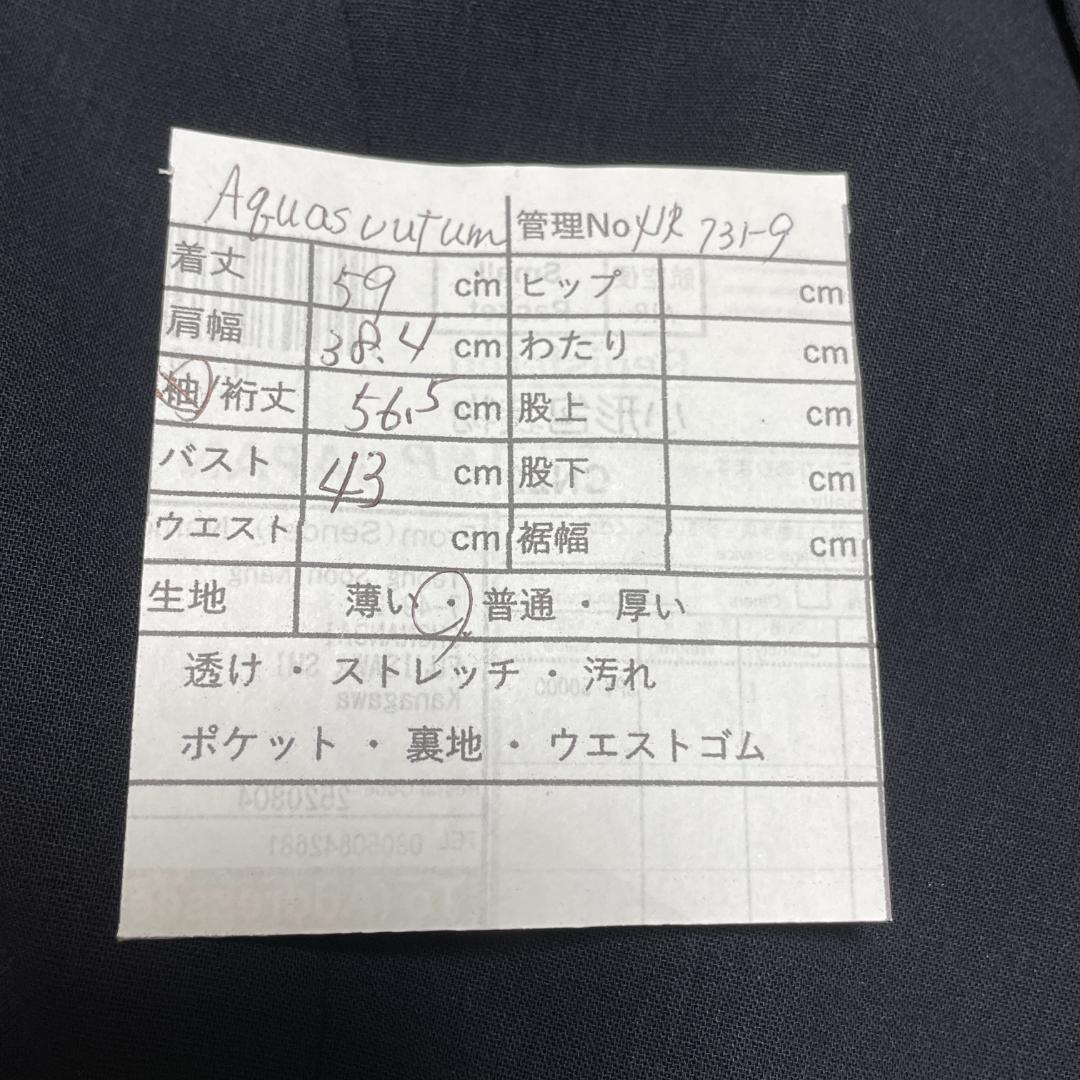 Aquascutum 管理No 731-9
着丈 59 cm ヒップ cm
肩幅 38.4 cm わたり cm
袖/裄丈 56.5 cm 股上 cm
バスト 43 cm 股下 cm
ウエスト cm 裾幅 cm
生地 薄い・普通・厚い
透け・ストレッチ・汚れ
ポケット・裏地・ウエストゴム